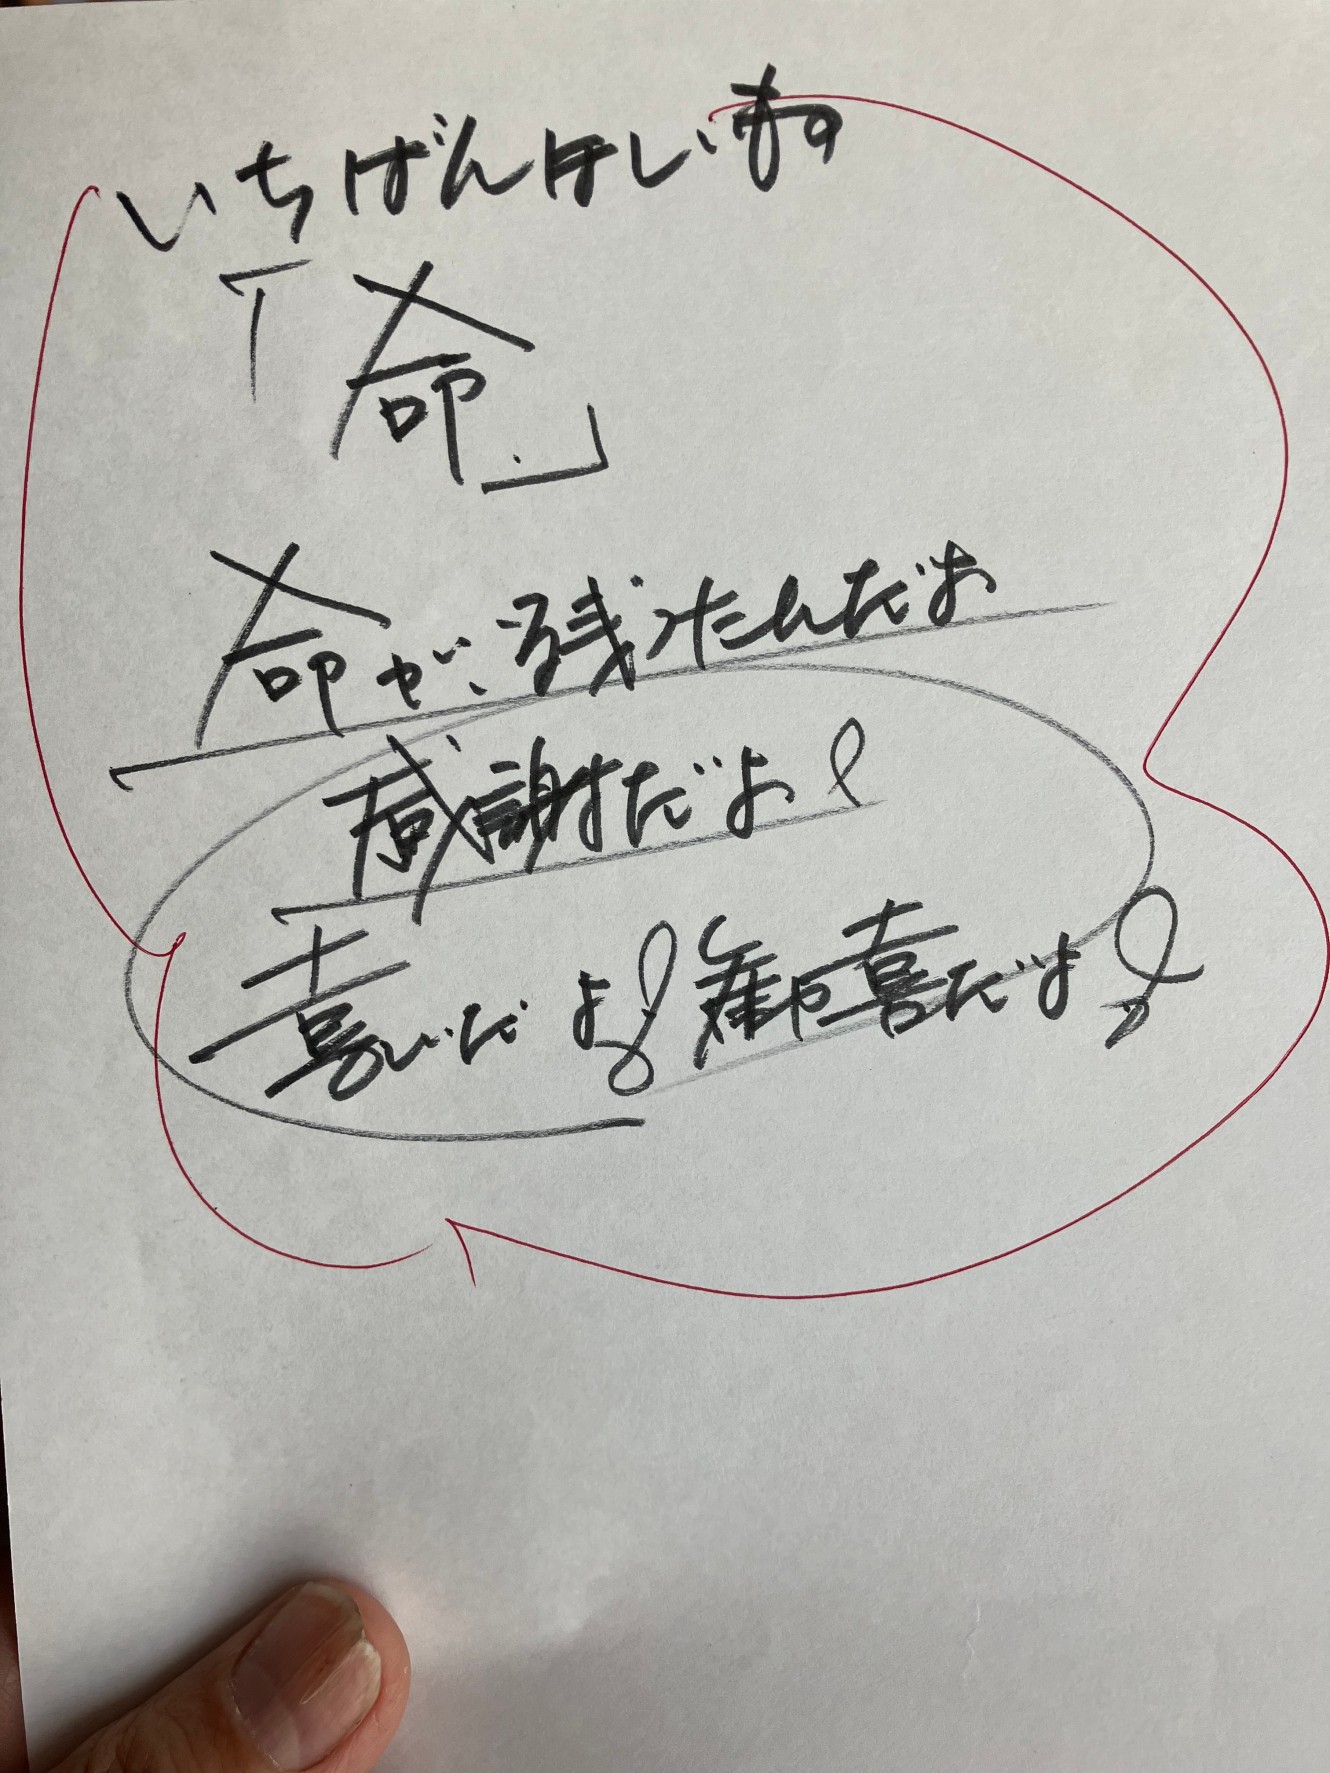 いちばんほしいもの
「命.」
命が、残ったんだよ
感謝だよ!
喜びだよ!歓喜だよ!